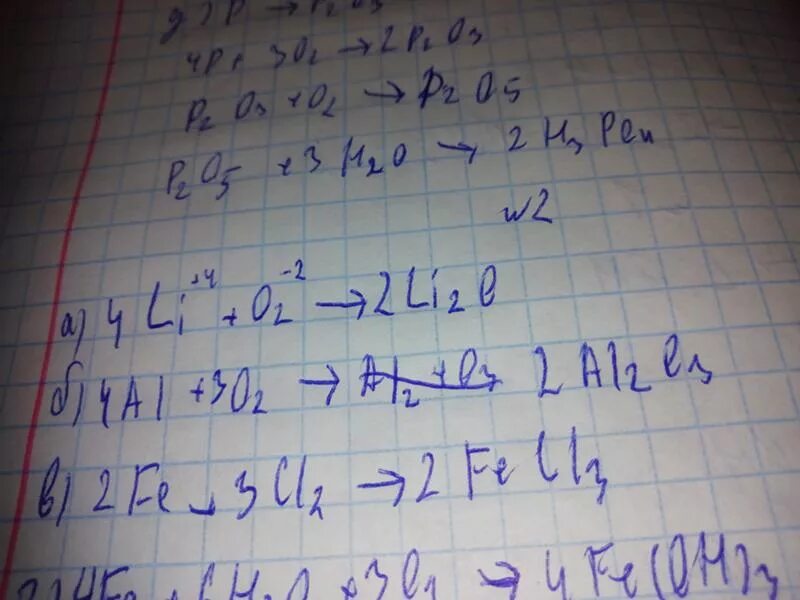 д) P → P₂O₃
4P + 3O₂ → 2P₂O₃
P₂O₃ + O₂ → P₂O₅
P₂O₅ + 3H₂O → 2H₃PO₄
№2
а) 4Li⁺⁴ + O₂⁻² → 2Li₂O
б) 4Al + 3O₂ → Al₂ + O₃ 2Al₂O₃
в) 2Fe + 3Cl₂ → 2FeCl₃
г) 4Fe + 6H₂O + 3O₂ → 4Fe(OH)₃